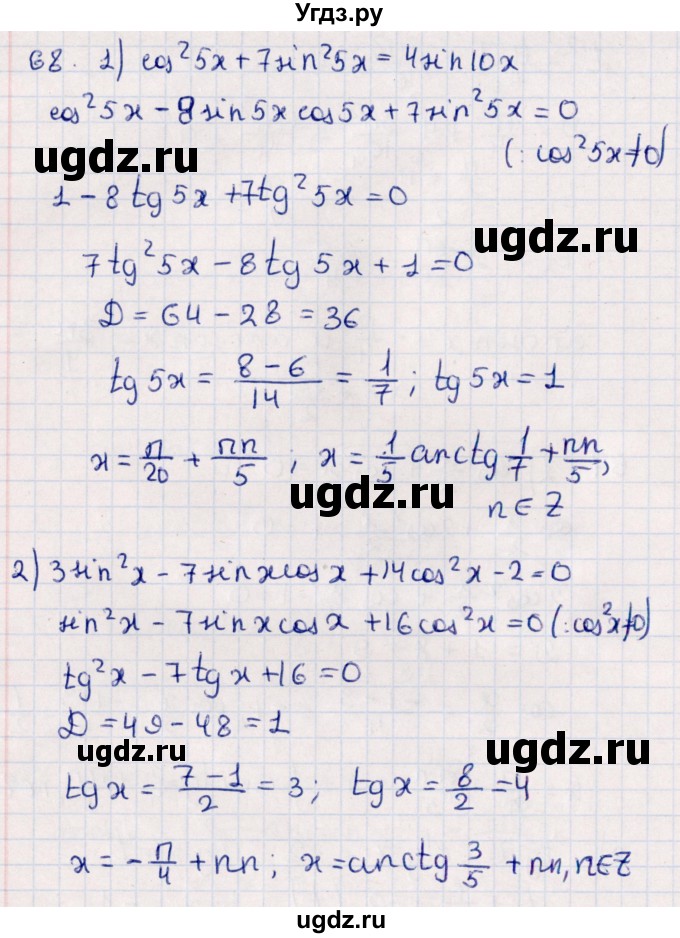 Угдз.ру
68. 1) cos²5x + 7sin²5x = 4sin10x
cos²5x - 8sin5x cos5x + 7sin²5x = 0
(: cos²5x≠0)
ugdz.ru
1 - 8tg5x + 7tg²5x = 0
ugdz.ru
7tg²5x - 8tg5x + 1 = 0
D = 64 - 28 = 36
tg5x = (8-6)/14 = 1/7; tg5x = 1
x = π/20 + πn/5; x = 1/5 arctg 1/7 + πn/5,
ugdz.ru
n∈Z
2) 3sin²x - 7sinxcosx + 14cos²x - 2 = 0
sin²x - 7sinxcosx + 16cos²x = 0 (: cos²x≠0)
ugdz.ru
tg²x - 7tgx + 16 = 0
D = 49 - 48 = 1
ugdz.ru
ugdz.ru
tgx = (7-1)/2 = 3; tgx = 8/2 = 4
x = -π/4 + πn; x = arctg 3/5 + πn, n∈Z
ugdz.ru